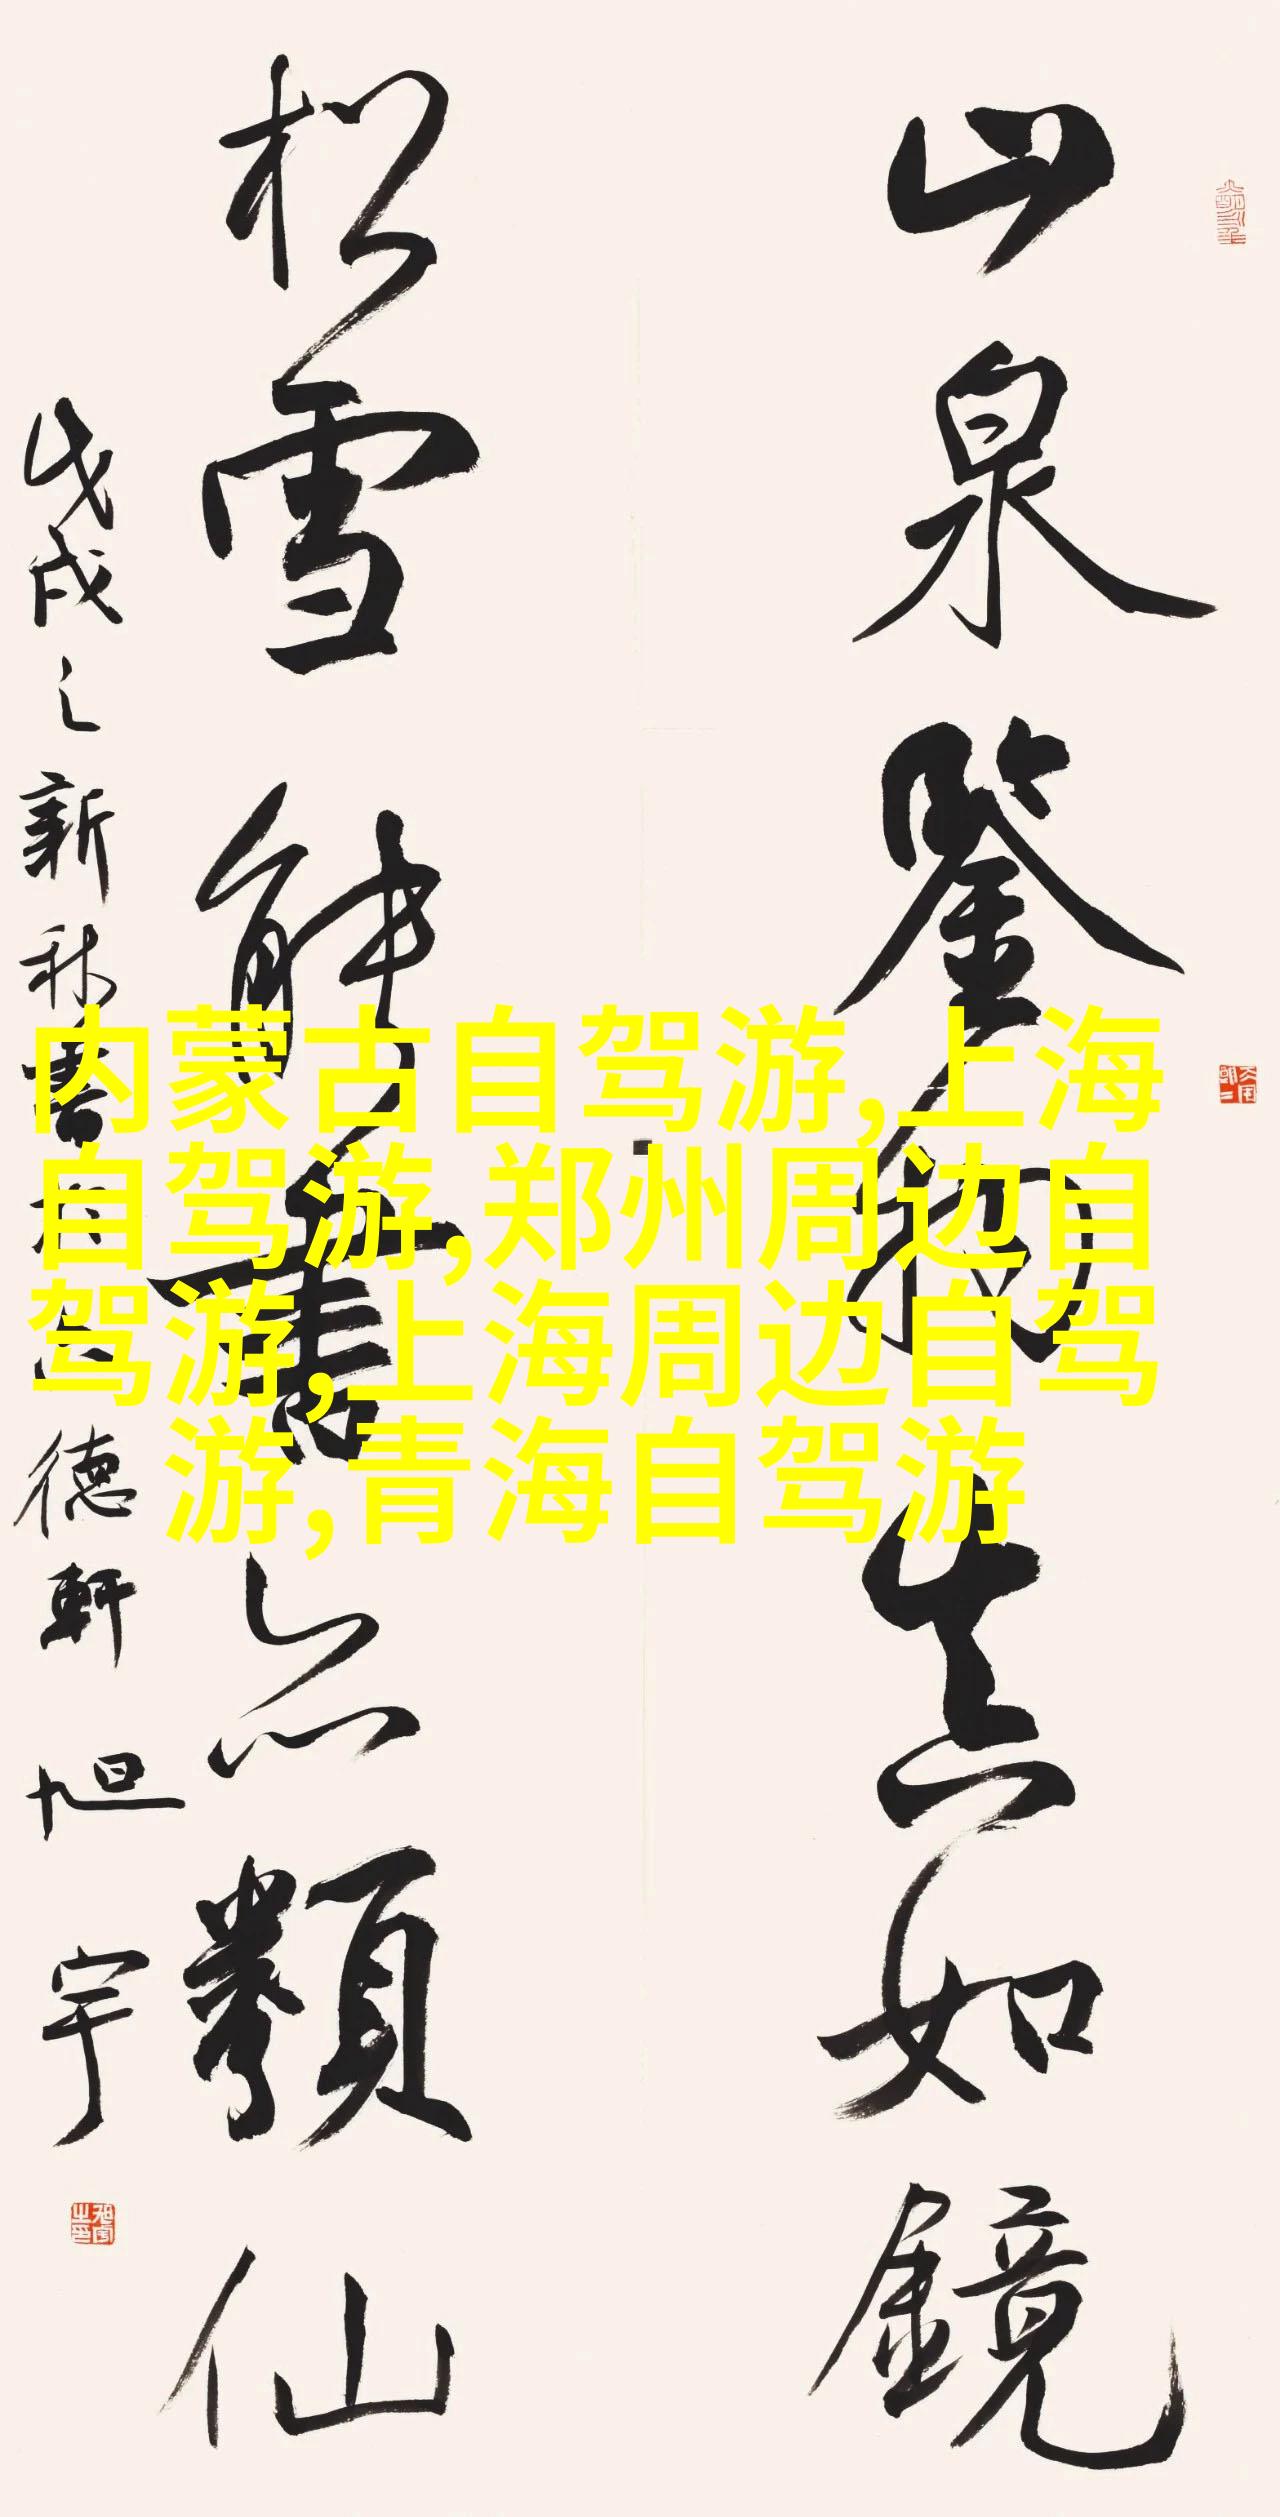 山泉鑒我真如鏡
松雪能書亦類仙
戊戌之新秋書於德軒 旭宇
内蒙古自驾游,上海
自驾游,郑州周边自
驾游,上海周边自驾
游,青海自驾游